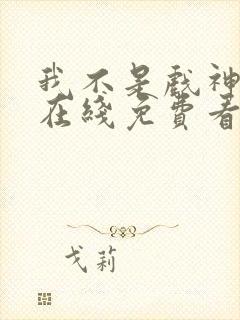 我不是戲神
在綫免費看
戈莉